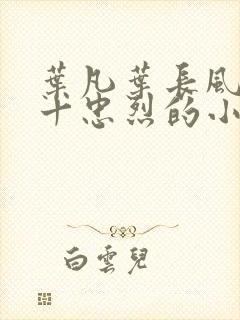 葉凡葉長風
十忠烈的小
白雲兒